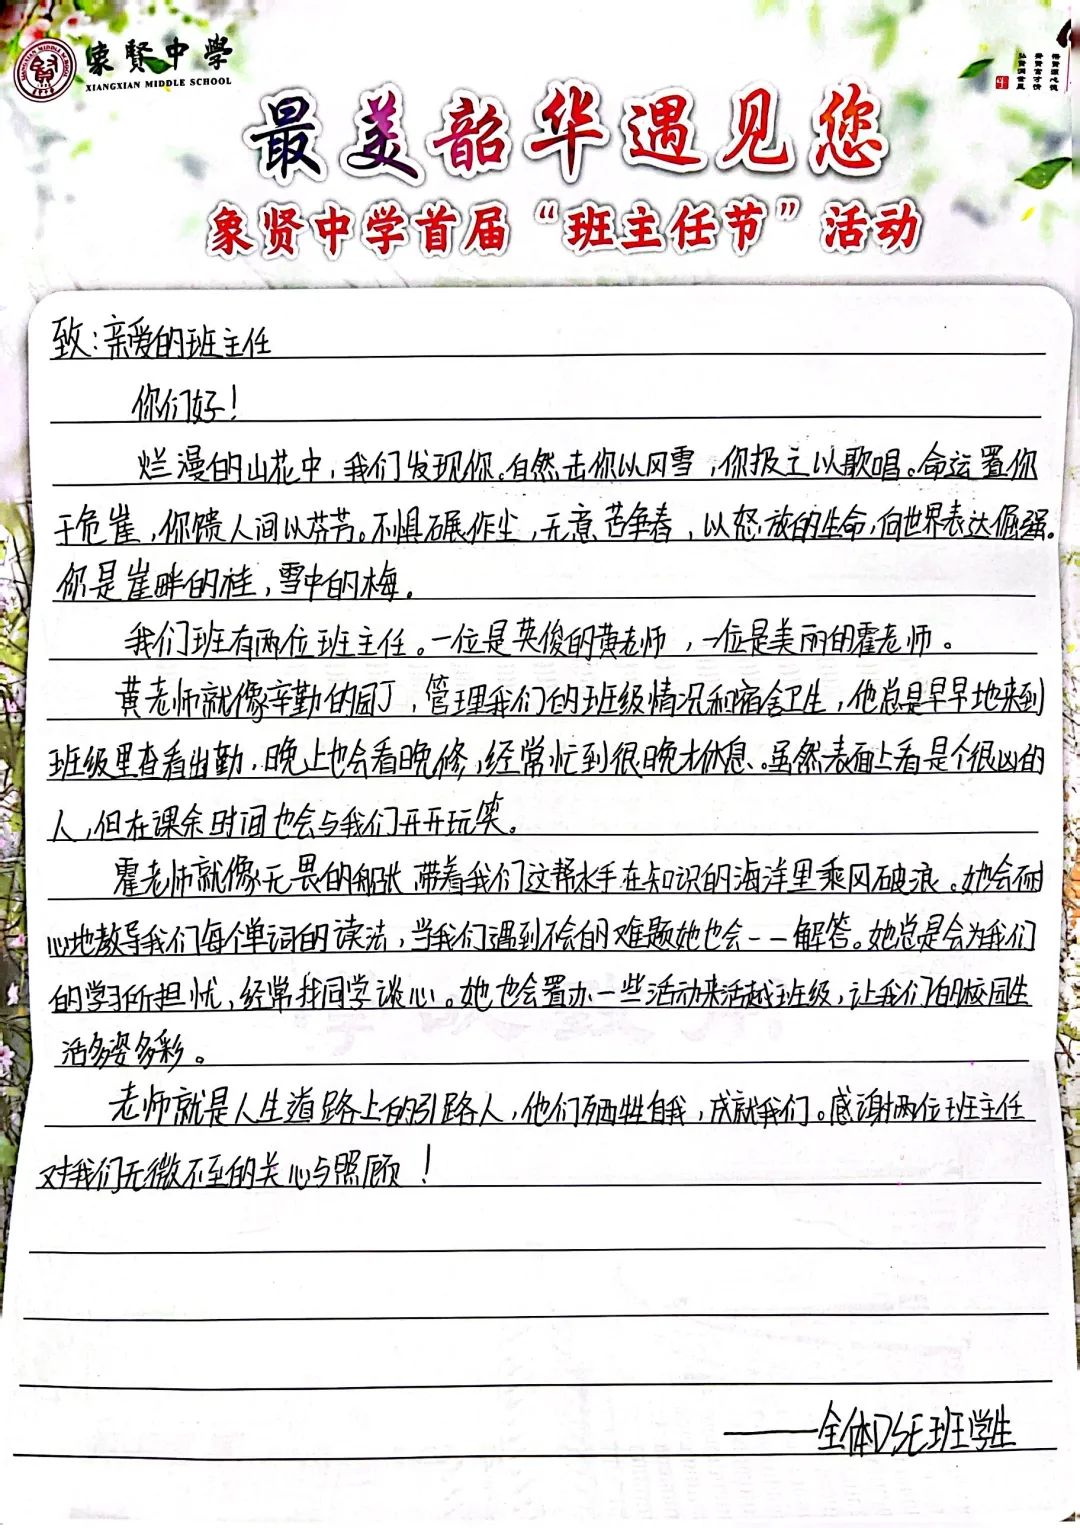 象賢中学
XIANGXIAN MIDDLE SCHOOL
最美韶华遇见您
象贤中学首届“班主任节”活动
致:亲爱的班主任
你们好!
烂漫的山花中,我们发现你。自然击你以风雪,你报之以歌唱。命运置你
于危崖,你馈人间以芬芳。不惧碾作尘,无意苦争春,以怒放的生命,向世界表达倔强。
你是崖畔的桂,雪中的梅。
我们班有两位班主任。一位是英俊的黄老师,一位是美丽的霍老师。
黄老师就像辛勤的园丁,管理我们的班级情况和宿舍卫生,他总是早早地来到
班级里查看出勤,晚上也会看晚修,经常忙到很晚才休息。虽然表面上看是个很凶的
人,但在课余时间也会与我们开开玩笑。
霍老师就像无畏的船张带着我们这帮水手在知识的海洋里乘风破浪。她会耐
心地教导我们每个单词的读法,当我们遇到不会的难题她也会一一解答。她总是会为我们
的学习所担忧,经常找同学谈心。她也会置办一些活动来活越班级,让我们的校园生
活多姿多彩。
老师就是人生道路上的引路人,他们牺牲自我,成就我们。感谢两位班主任
对我们无微不至的关心与照顾!
——全体DSE班学生